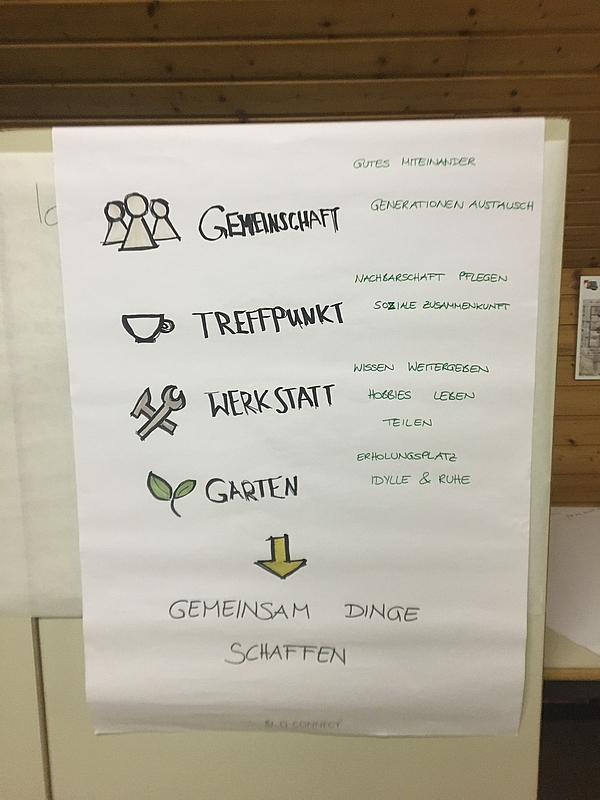 GUTES MITEINANDER
GEMEINSCHAFT
GENERATIONEN AUSTAUSCH
NACHBARSCHAFT PFLEGEN
TREFFPUNKT
SOZIALE ZUSAMMENKUNFT
WISSEN WEITERGEBEN
WERKSTATT
HOBBIES LEBEN
TEILEN
ERHOLUNGSPLATZ
GARTEN
IDYLLE & RUHE
GEMEINSAM DINGE
SCHAFFEN
CONNECT